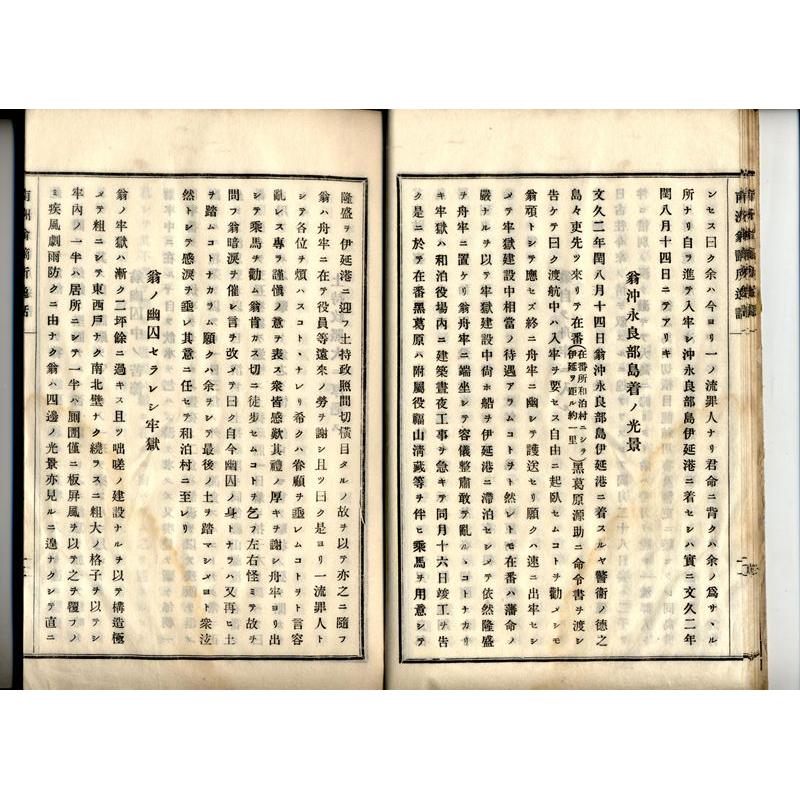 ンセス曰ク余ハ今ヨリ一ノ流罪人ナリ君命ニ背クハ余ノ爲サヽル
所ナリ自ヲ進テ入牢シ沖永良部島伊延港ニ着セシハ實ニ文久二年
閏八月十四日ニテアリキ
翁沖永良部島着ノ光景
文久二年閏八月十四日翁沖永良部島伊延港ニ着スルヤ警衛ノ德之
島々吏先ツ來リテ在番(在番所和泊村ニシテ伊延ヲ距ル約一里)黑葛原源助ニ命令書ヲ渡シ
告ケテ曰ク渡航中ハ入牢ヲ要セス自由ニ起臥セムコトヲ勸メシモ
翁頑トシテ應セズ終ニ舟牢ニ幽シテ護送セリ願クハ速ニ出牢セシ
メテ牢獄建設中相當ノ待遇アラムコトヲト然レトモ在番ハ藩命ノ
嚴ナルヲ以テ牢獄建設中尙ホ船ヲ伊延港ニ滯泊セシメテ依然隆盛
ヲ舟牢ニ置ケリ翁舟牢ニ端坐シテ容儀整肅敢テ亂ルヽコトナカリ
キ牢獄ハ和泊役場內ニ建築晝夜工事ヲ急キテ同月十六日竣工ヲ告
ク是ニ於テ在番黑葛原ハ附屬役福山淸藏等ヲ伴ヒ乘馬ヲ用意シテ
隆盛ヲ伊延港ニ迎フ土持政照間切橫目タルノ故ヲ以テ亦之ニ隨フ
翁ハ舟牢ニ在テ役員等遠來ノ勞ヲ謝シ且ツ曰ク是ヨリ一流罪人ト
シテ各位ヲ煩ハスコト、ナレリ希クハ眷顧ヲ垂レムコトヲト言容
亂レス專ラ謹愼ノ意ヲ表ス衆皆感歎其禮ノ厚キヲ謝シ舟牢ヨリ出
シテ乘馬ヲ勸ム翁肯カス切ニ徒步セムコトヲ乞フ左右怪ミテ故ヲ
問フ翁暗淚ヲ催シ言ヲ改メテ曰ク自今幽囚ノ身トナラハ又再ヒ土
ヲ踏ムコトナカラム願クハ余ヲシテ最後ノ土ヲ踏マシメヨト衆泫
然トシテ感淚ヲ垂レ其意ニ任セテ和泊村ニ至レリ
翁ノ幽囚セラレシ牢獄
翁ノ牢獄ハ漸ク二坪餘ニ過キス且ツ咄嗟ノ建設ナルヲ以テ構造極
メテ粗ニシテ東西戶ナク南北壁ナク繞ラスニ粗大ノ格子ヲ以テシ
牢內ノ一半ハ居所ニシテ一半ハ厠圊僅ニ板屏風ヲ以テ之ヲ覆フノ
ミ疾風劇雨防クニ由ナク翁ハ四邊ノ光景亦見ルニ遑ナクシテ直ニ